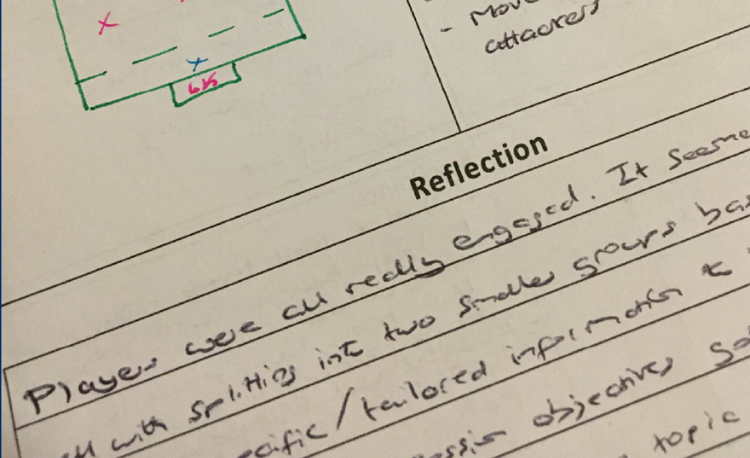 - Move
attackers
GK
Reflection
Players were all really engaged. It seeme
with splitting into two smaller groups bas
ecific/tailored information to
ession objectives
topic